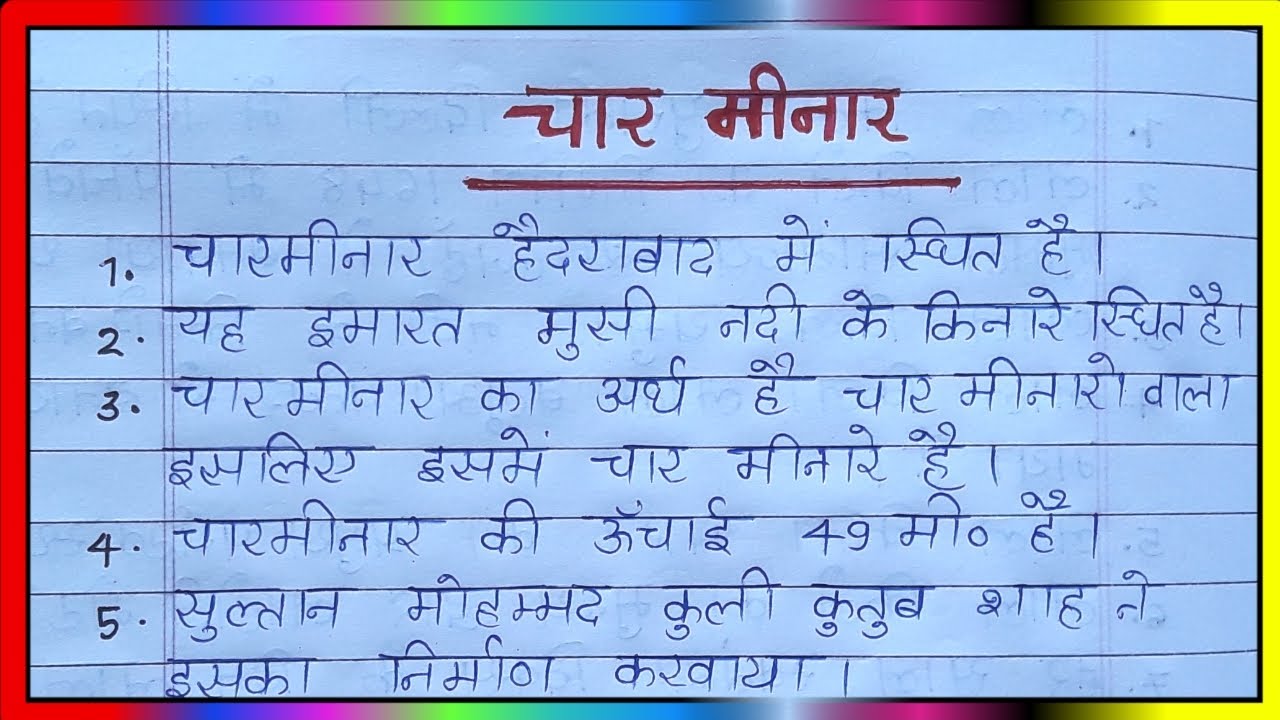 चार मीनार
1. चारमीनार हैदराबाद में स्थित है।
2. यह इमारत मुसी नदी के किनारे स्थित है।
3. चारमीनार का अर्थ है चार मीनारो वाला
इसलिए इसमें चार मीनारे है।
4. चारमीनार की ऊँचाई 49 मी० है।
5. सुल्तान मोहम्मद कुली कुतुब शाह ने
इसका निर्माण करवाया।